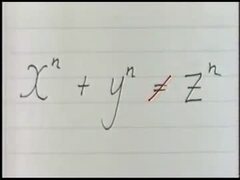 xⁿ + yⁿ ≠ zⁿ